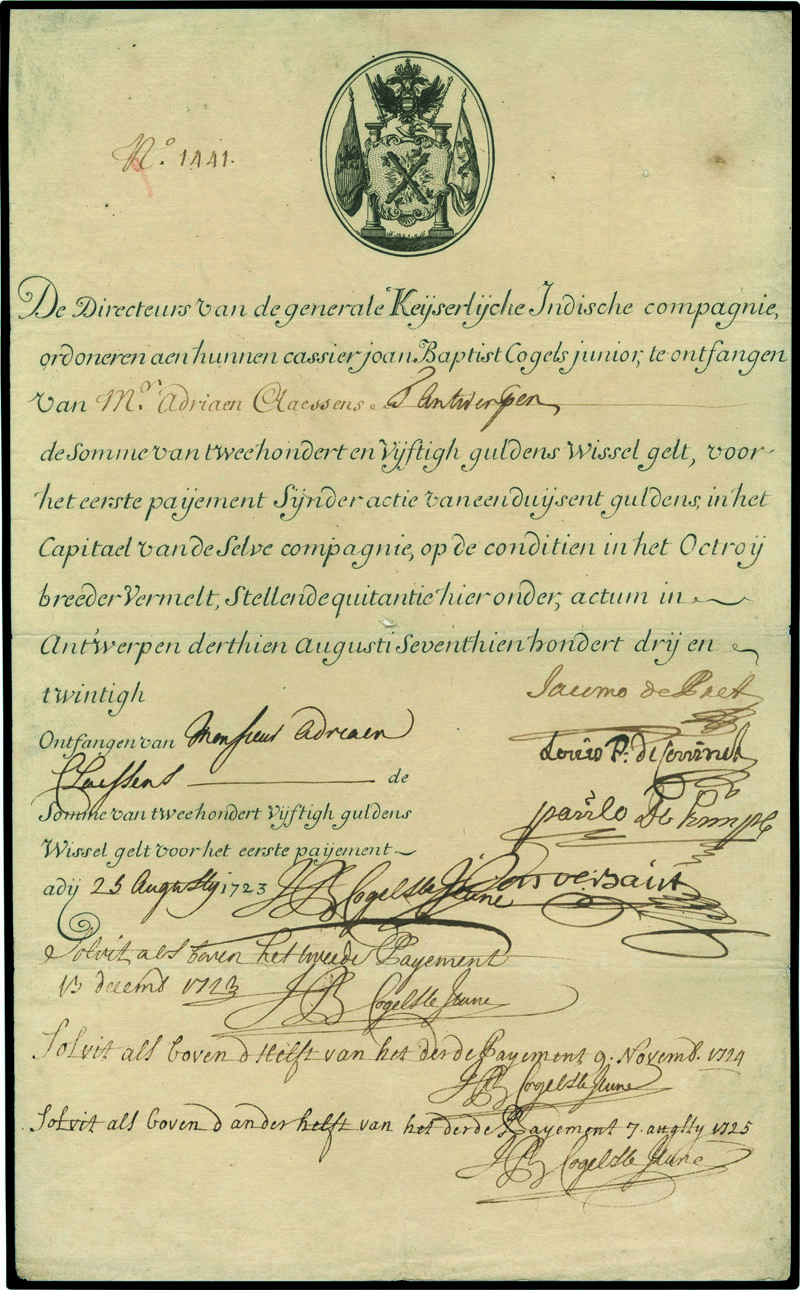 Nº. 1441.
De Directeurs van de generale Keijserlijche Indische compagnie,
ordoneren aen hunnen cassier joan Baptist Cogels junior, te ontfangen
van Mor. Adriaen Claessens T'antwerpen
de Somme van tweehondert en Vijftigh guldens Wissel gelt, voor
het eerste paijement Sijnder actie van een duijsent guldens, in het
Capitael van de Selve compagnie, op de conditien in het Octroij
breeder Vermelt, Stellende quitantie hier onder, actum in
Antwerpen derthien Augusti Seventhien hondert drij en
twintigh
Jacomo de Pret
Ontfangen van Monsieur Adriaen
Louis F. de Coninck
Claessens de
Somme van tweehondert Vijftigh guldens
paúlo De Kimpe
Wissel gelt voor het eerste paijement
adij 25 Augustij 1723 JB Cogels le Jeune
Solvit als boven het tweede Payement
13 decemb 1723 JB Cogels le Jeune
Solvit als boven d helft van het derde Payement 9. Novemb. 1724
JB Cogels le Jeune
Solvit als boven d ander helft van het derde Payement 7 augsty 1725
JB Cogels le Jeune